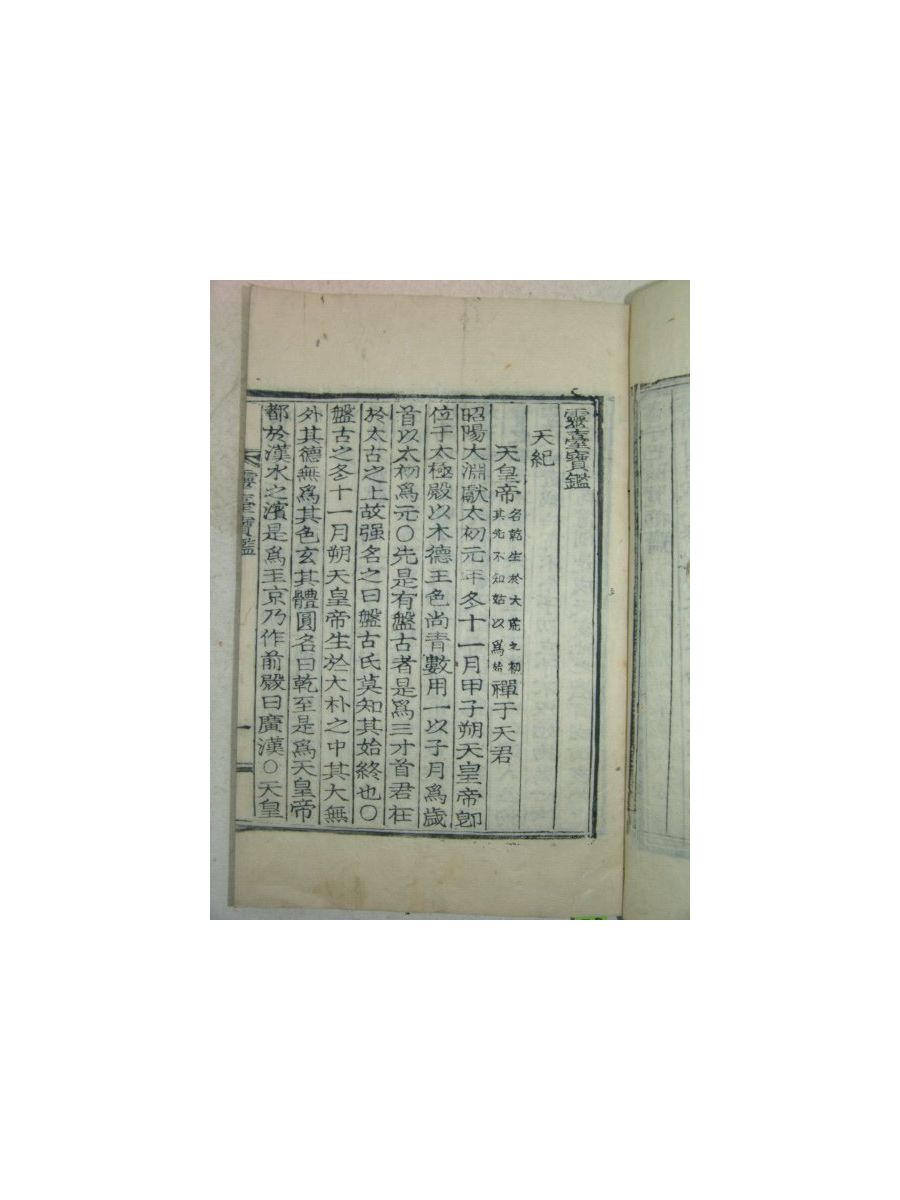 靈臺寶鑑
天紀
天皇帝 名乾生於大荒之初 其先不知始以爲始 禪于天君
昭陽大淵獻太初元年冬十一月甲子朔天皇帝卽
位于太極殿以木德王色尚青數用一以子月爲歲
首以太初爲元○先是有盤古者是爲三才首君在
於太古之上故强名之曰盤古氏莫知其始終也○
盤古之冬十一月朔天皇帝生於大朴之中其大無
外其德無爲其色玄其體圓名曰乾至是爲天皇帝
都於漢水之濱是爲玉京乃作前殿曰廣漢○天皇
靈臺寶鑑
一